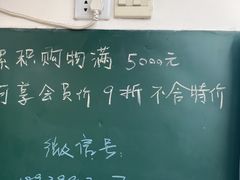 累积购物满 5000元
可享会员价 9折 不含特价
微信号: